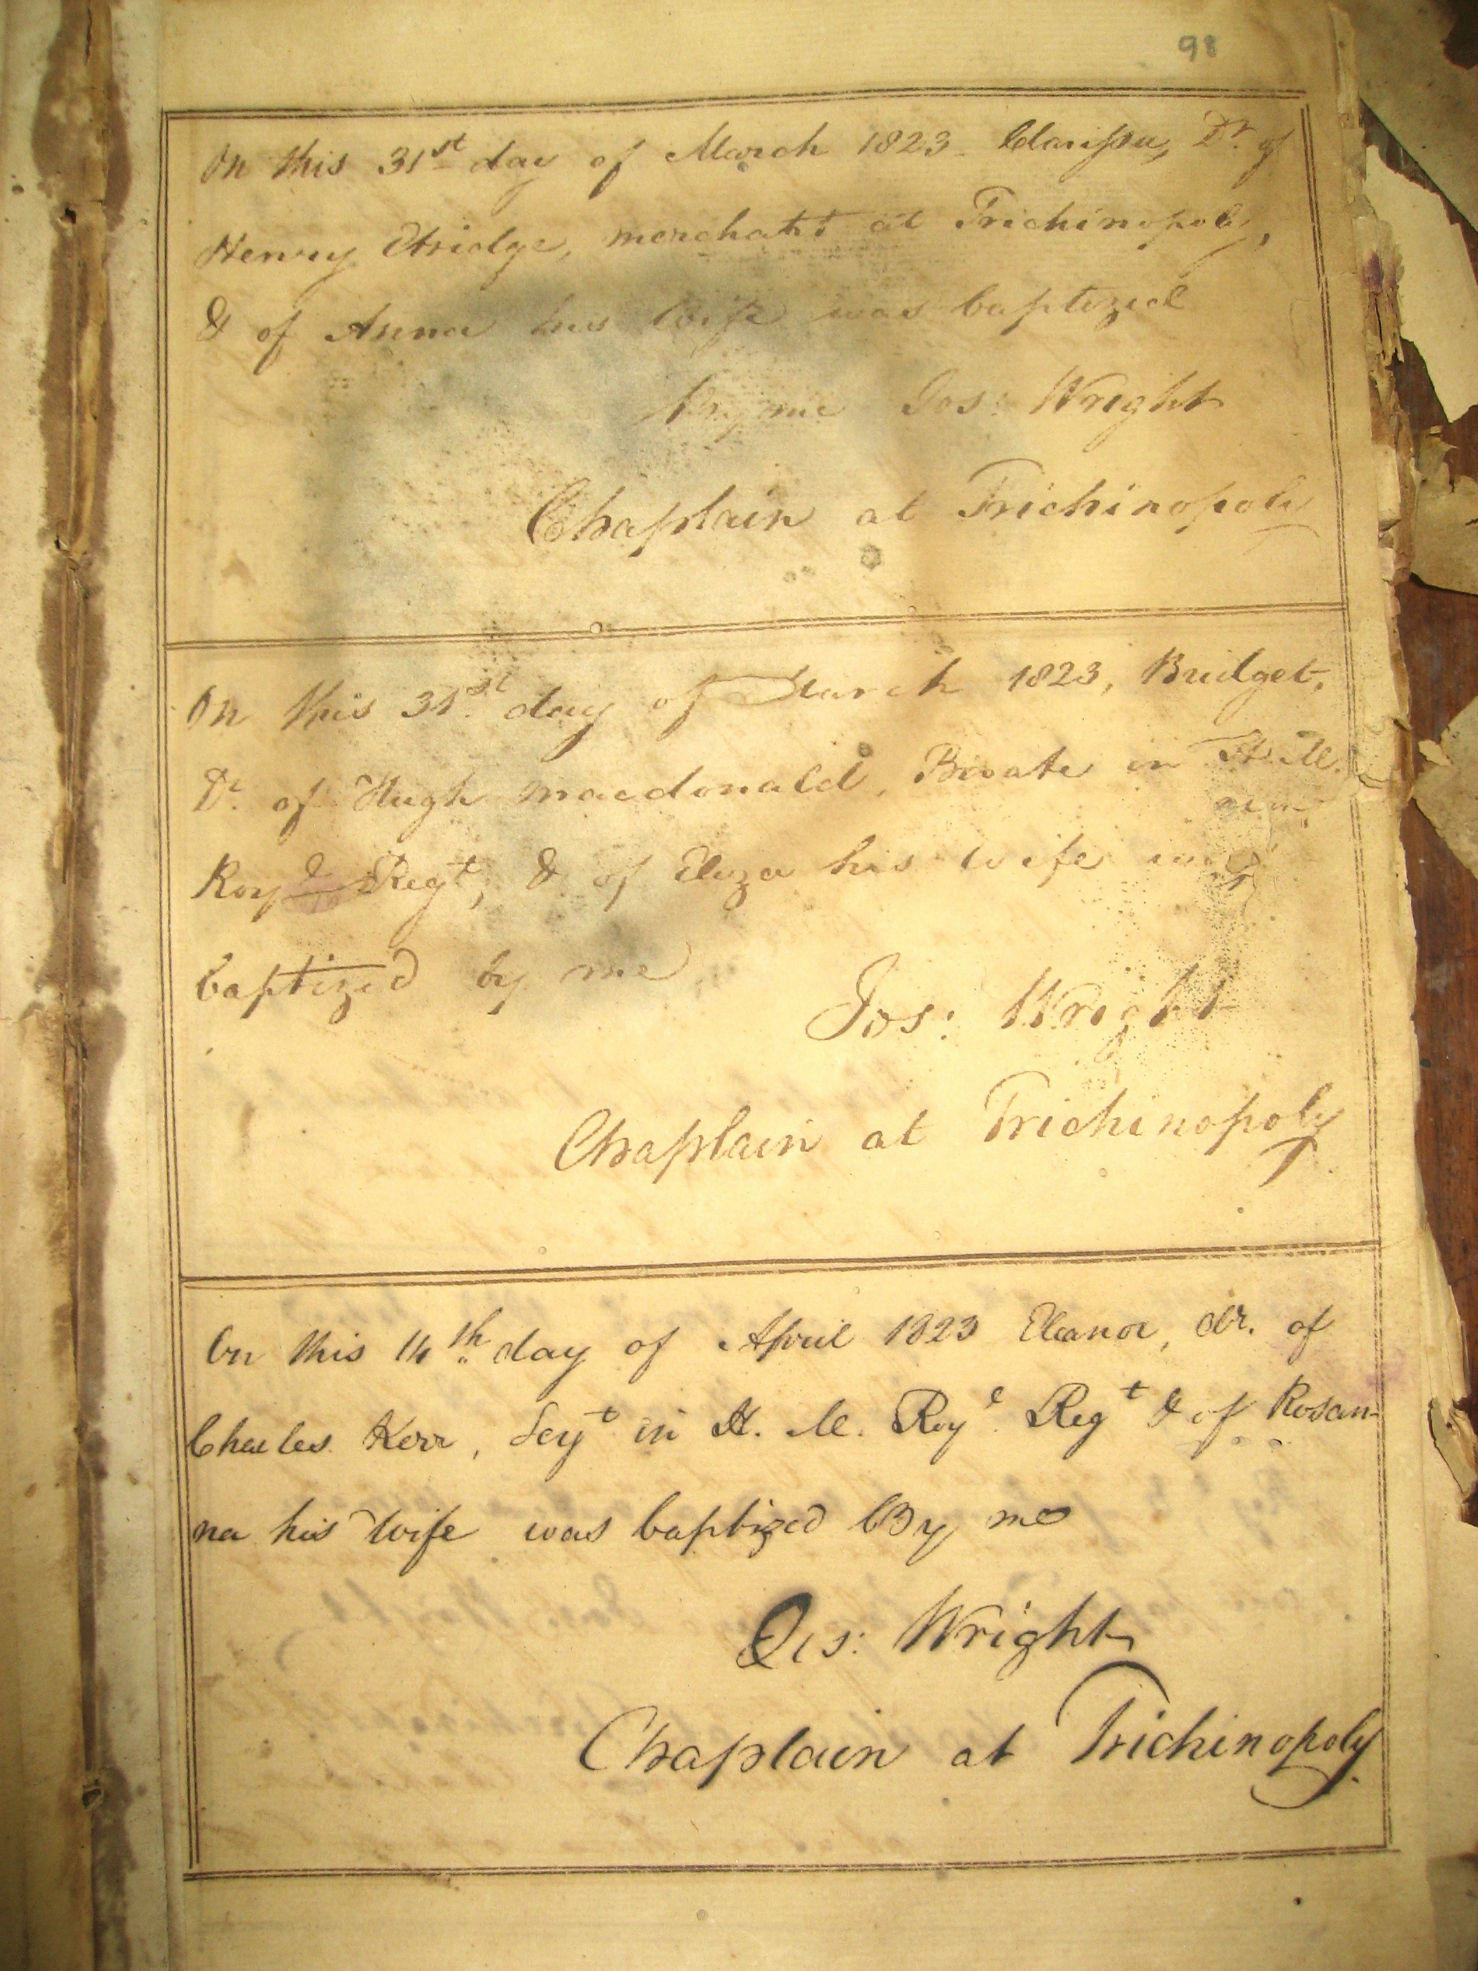 98
On this 31st day of March 1823 Clarissa, Dr. of
Henry Etridge, merchant at Trichinopoly,
& of Anna his wife was baptized
by me Jos: Wright
Chaplain at Trichinopoly
On this 31st day of March 1823, Bridget,
Dr. of Hugh macdonald, Private in H. M.
Royl Regt, & of Eliza his wife was
baptized by me
Jos: Wright
Chaplain at Trichinopoly
On this 14th day of April 1823 Eleanor, dr. of
Charles Kerr, Sejt in H. M. Royl Regt & of Rosan-
na his wife was baptized By me
Jos: Wright
Chaplain at Trichinopoly